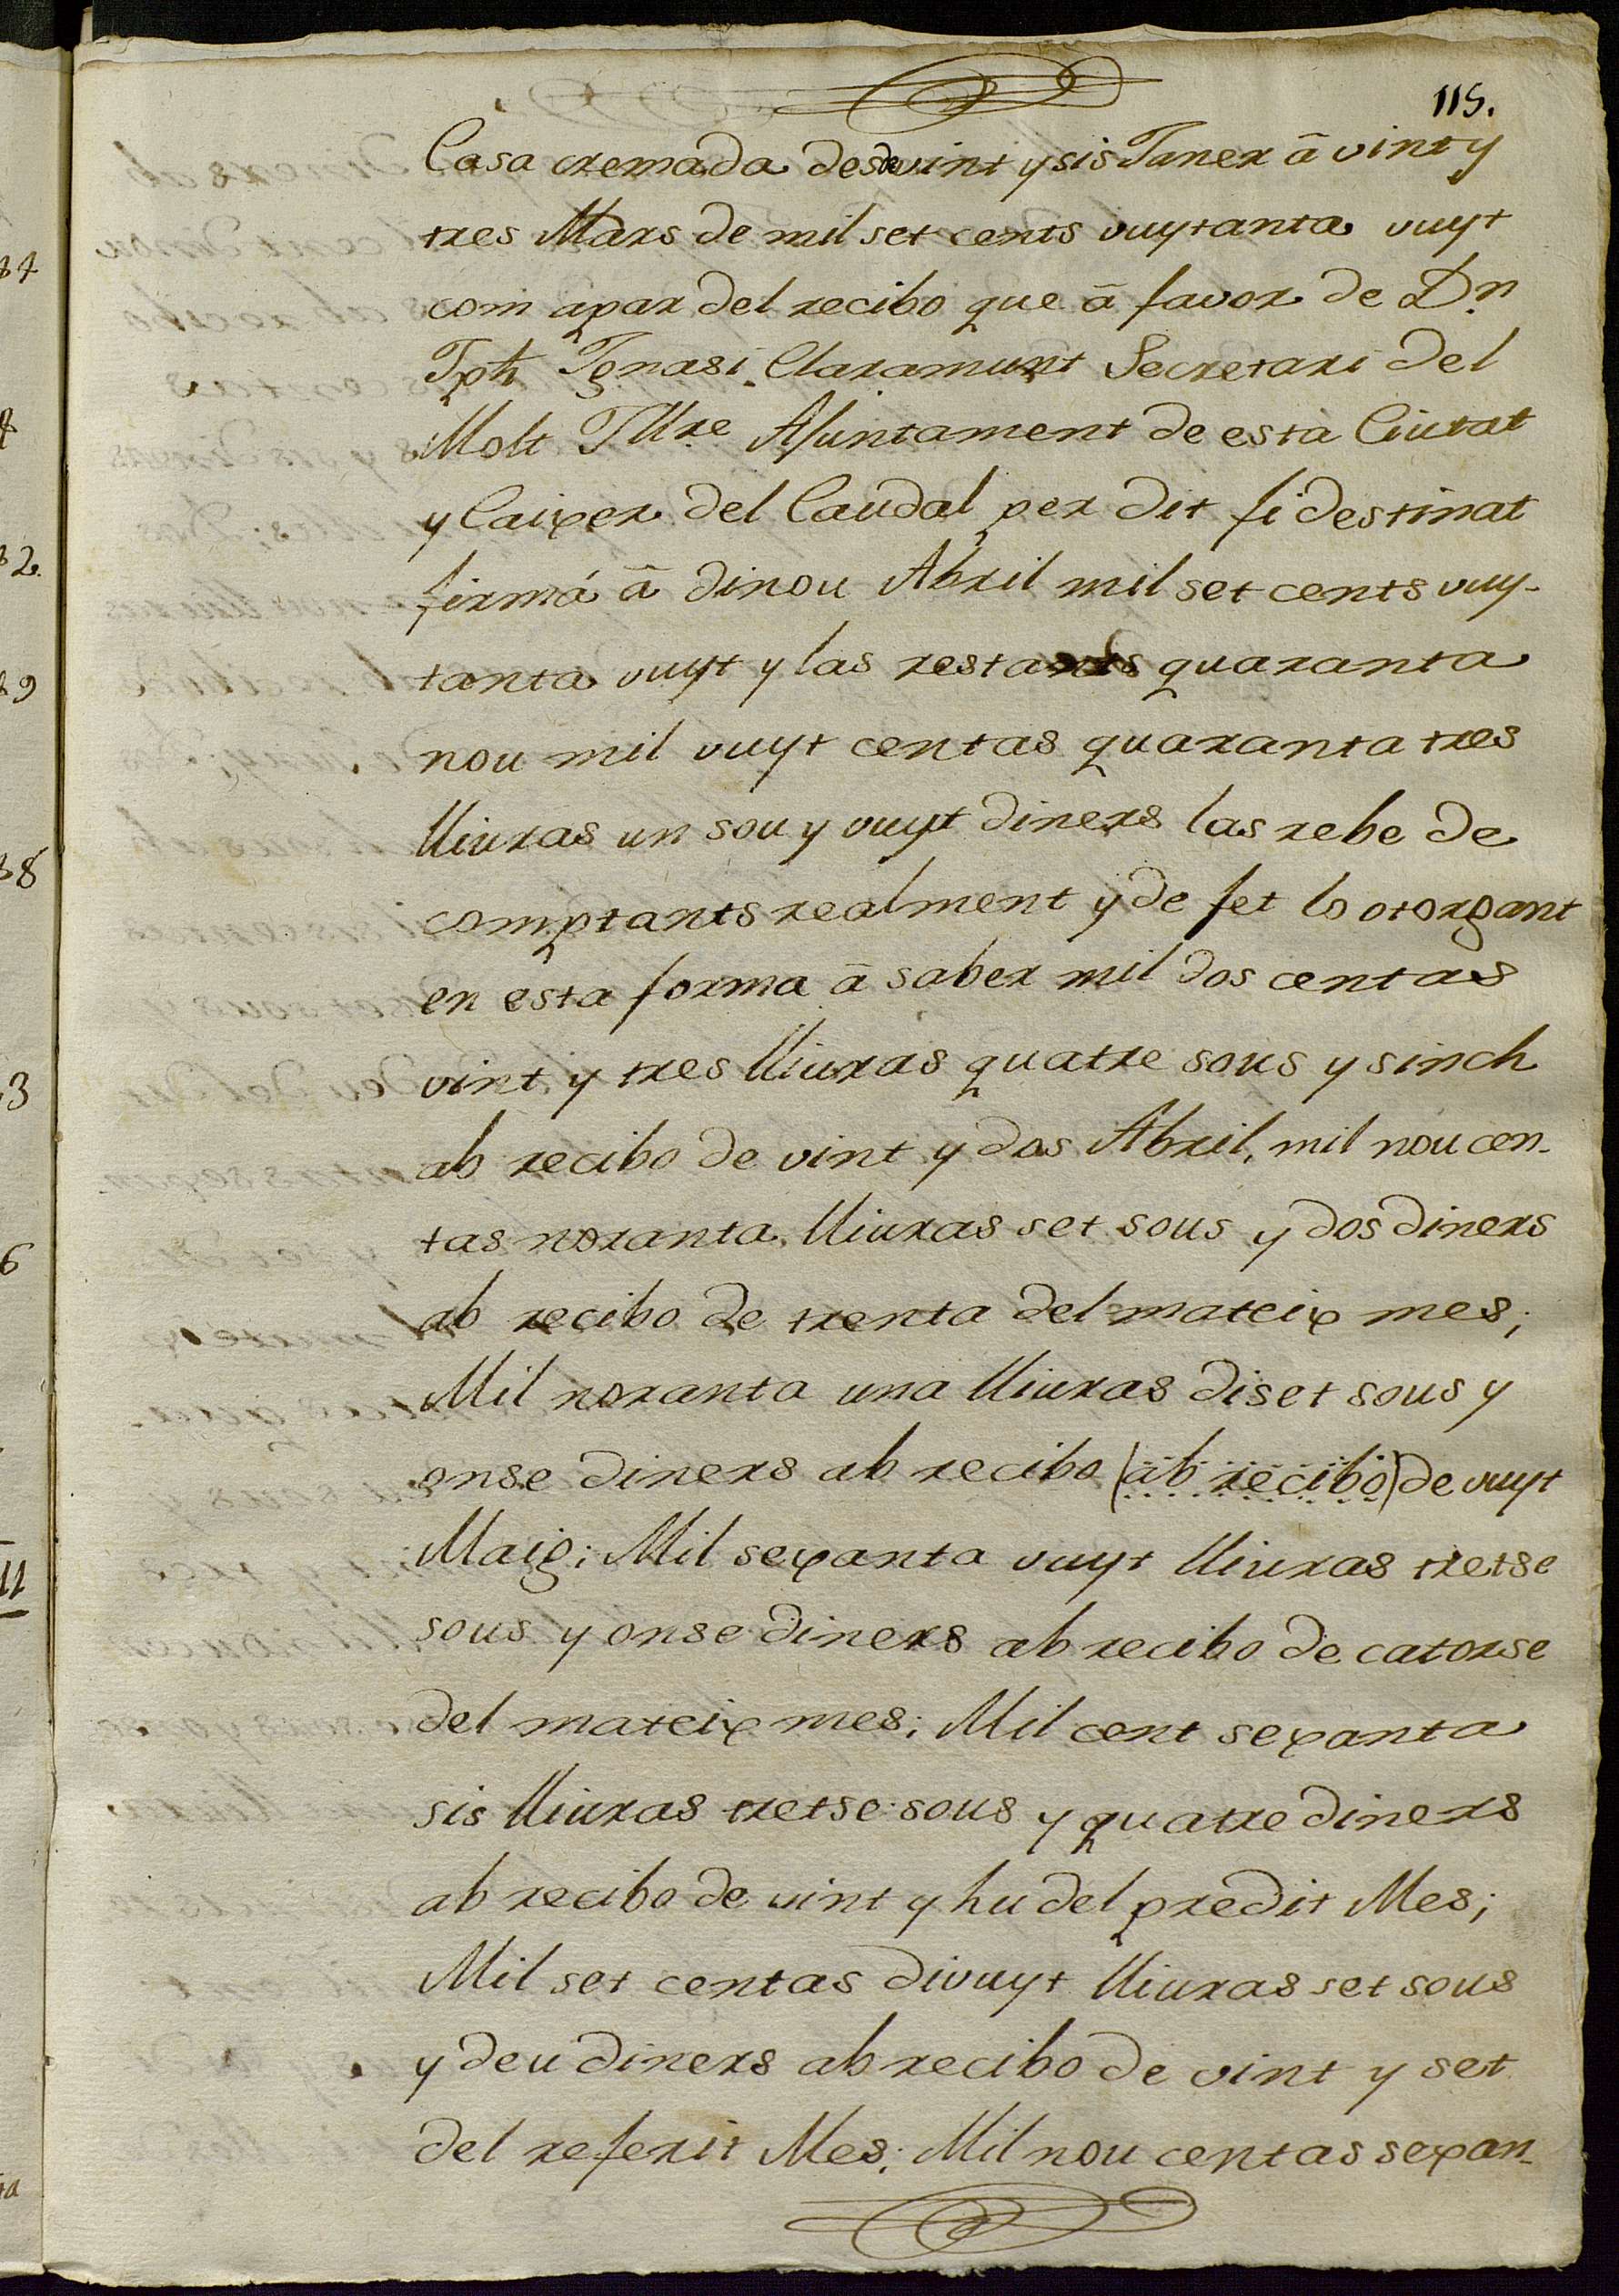 115.
Casa cremada desde vint y sis Janer à vint y
tres Mars de mil set cents vuytanta vuyt
com apar del recibo que à favor de Dn.
Jph Ignasi Claramunt Secretari del
Molt Illre Ajuntament de esta Ciutat
y Caixer del Caudal per dit fi destinat
firmá à dinou Abril mil set cents vuy-
tanta vuyt y las restants quaranta
nou mil vuyt centas quaranta tres
lliuras un sou y vuyt diners las rebe de
comptants realment y de fet lo otorgant
en esta forma à saber mil dos centas
vint y tres lliuras quatre sous y sinch
ab recibo de vint y dos Abril, mil nou cen-
tas noranta lliuras set sous y dos diners
ab recibo de trenta del mateix mes;
Mil noranta una lliuras diset sous y
onse diners ab recibo (ab recibo) de vuyt
Maig; Mil sexanta vuyt lliuras tretse
sous y onse diners ab recibo de catorse
del mateix mes; Mil cent sexanta
sis lliuras tretse sous y quatre diners
ab recibo de vint y hu del predit Mes;
Mil set centas divuyt lliuras set sous
y deu diners ab recibo de vint y set
del referit Mes; Mil nou centas sexan-